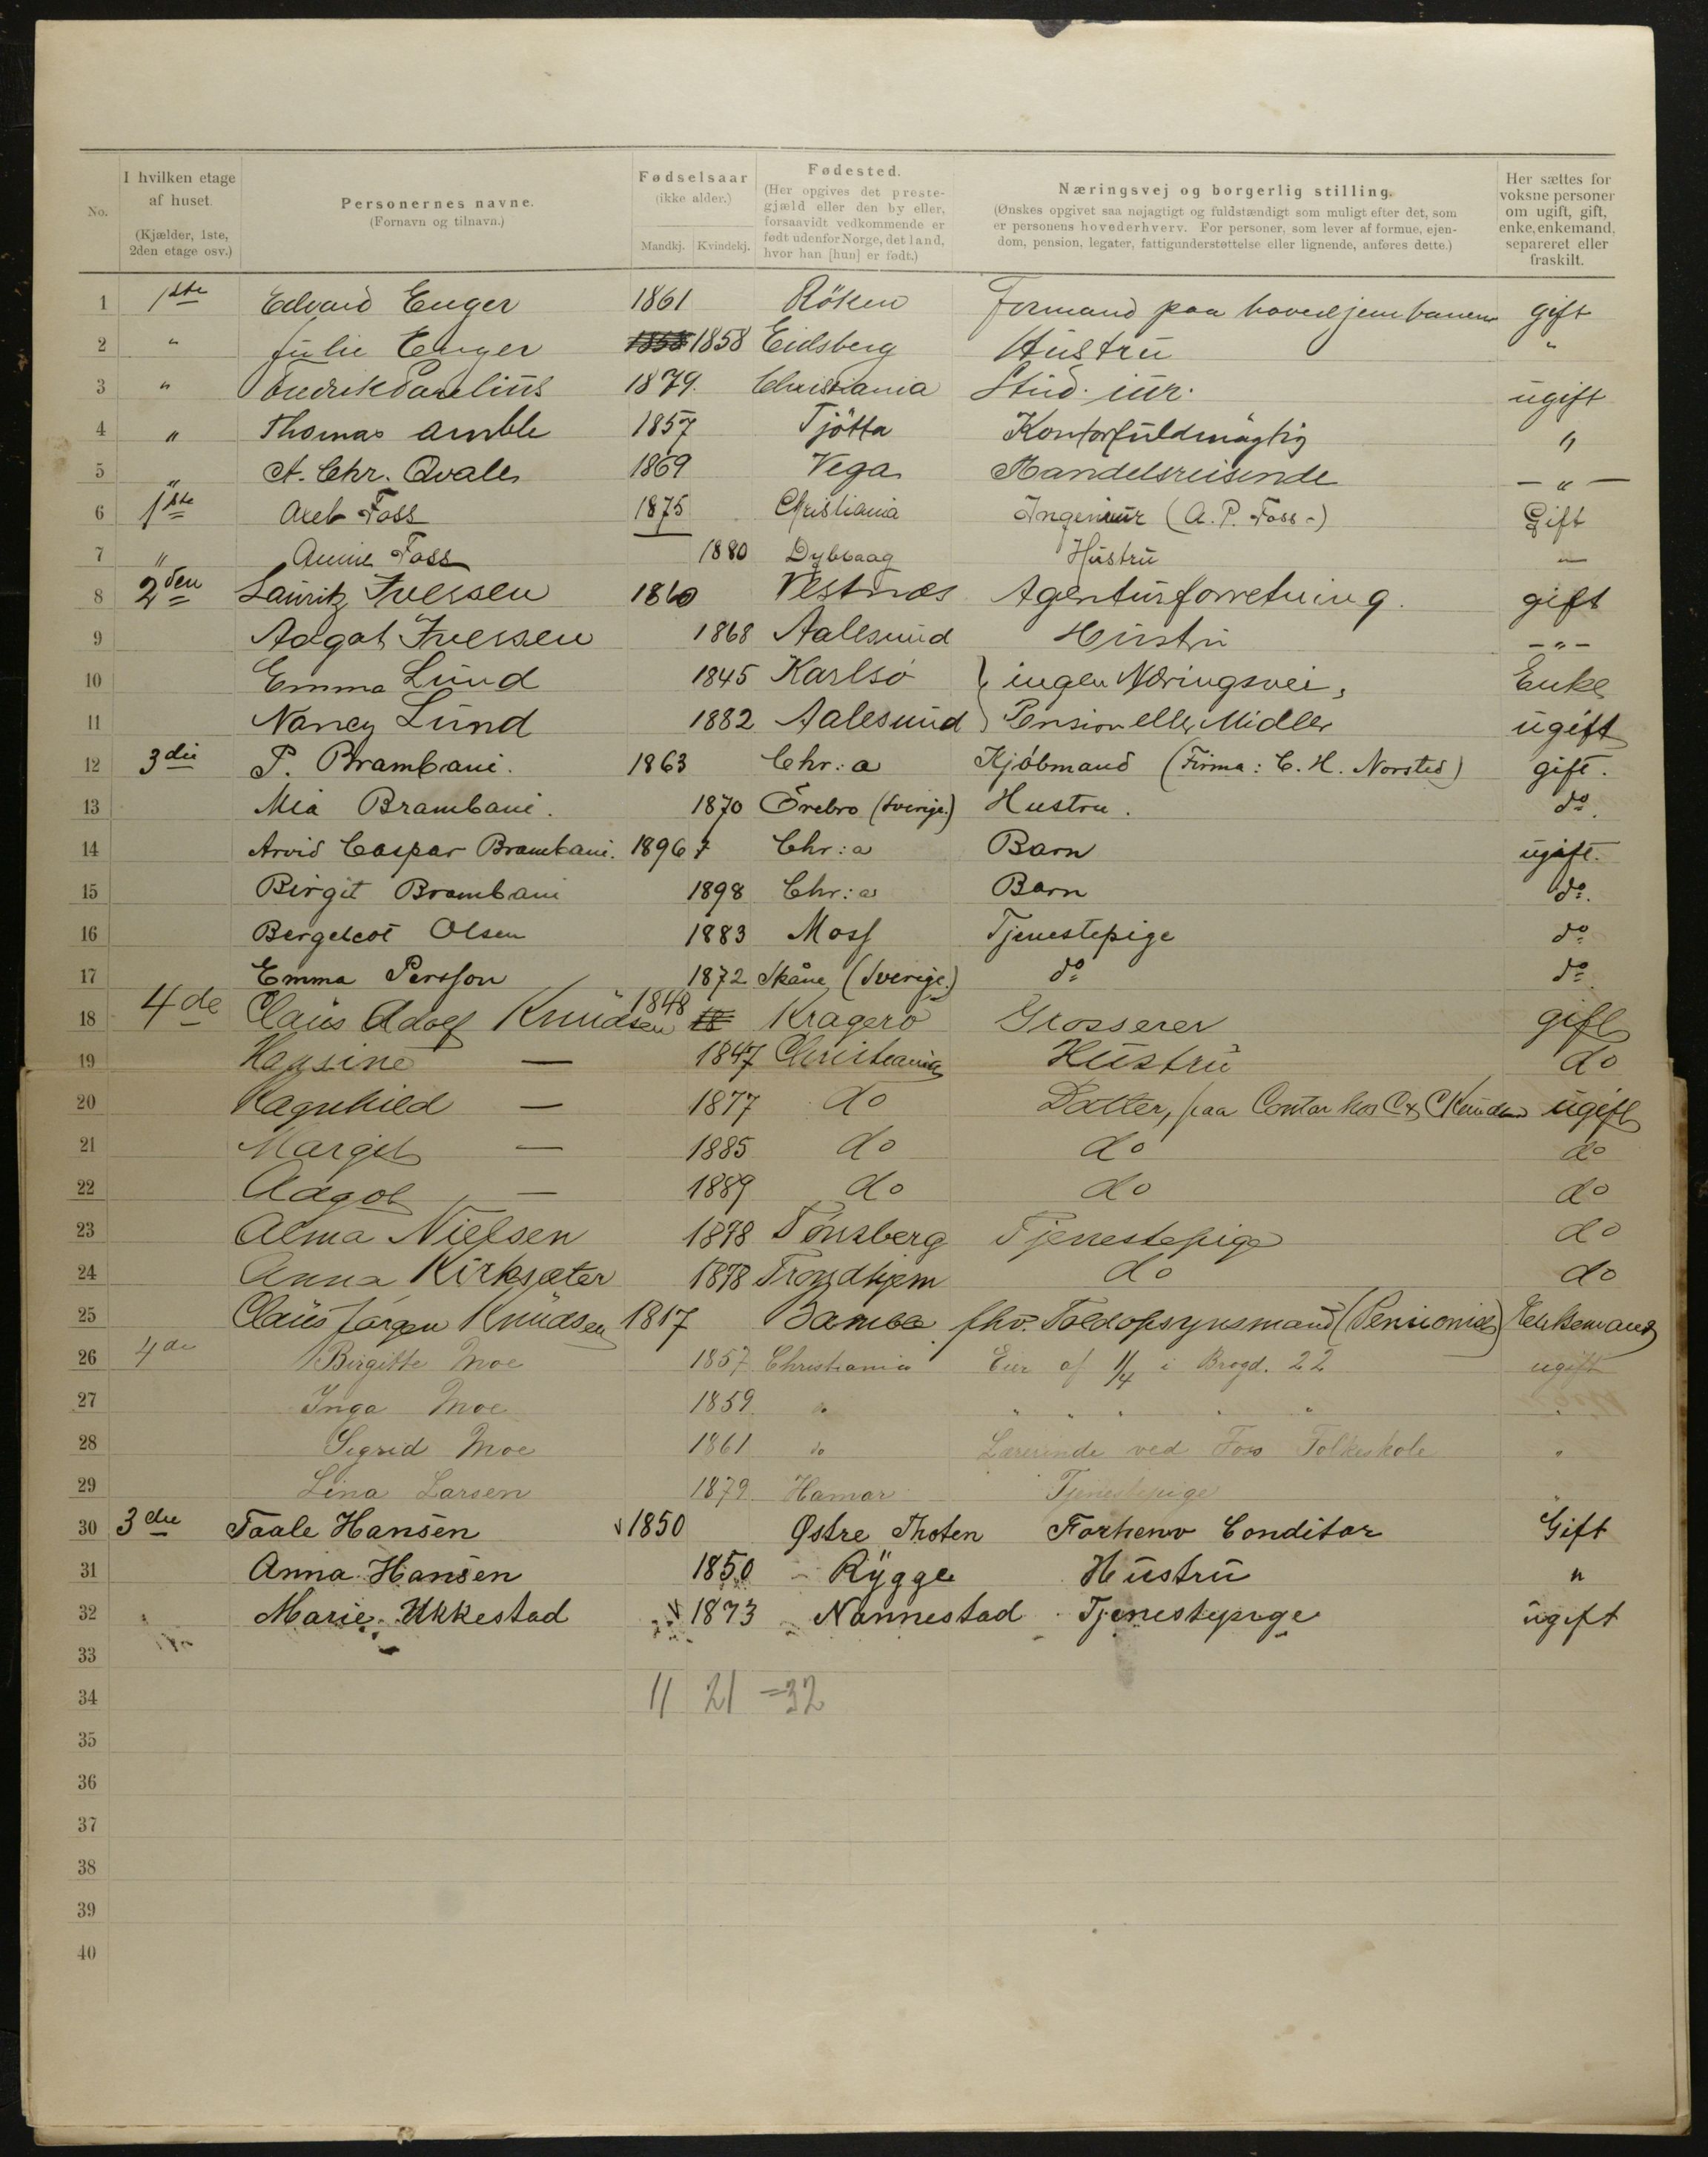 No.
I hvilken etage
af huset.
(Kjælder, 1ste,
2den etage osv.)
Personernes navne.
(Fornavn og tilnavn.)
Fødselsaar
(ikke alder.)
Mandkj. Kvindekj.
Fødested.
(Her opgives det preste-
gjæld eller den by eller,
forsaavidt vedkommende er
født udenfor Norge, det land,
hvor han [hun] er født.)
Næringsvej og borgerlig stilling.
(Ønskes opgivet saa nøjagtigt og fuldstændigt som muligt efter det, som
er personens hovederhverv. For personer, som lever af formue, ejen-
dom, pension, legater, fattigunderstøttelse eller lignende, anføres dette.)
Her sættes for
voksne personer
om ugift, gift,
enke, enkemand,
separeret eller
fraskilt.
1 1ste Edvard Enger 1861 Röken Formand paa hovedjernbanen gift
2 " Julie Enger 1858 1858 Eidsberg Hustru "
3 " Fredrik Paulius 1879. Christiania Stud. iur. ugift
4 " Thomas Amble 1857 Tjötta Kontorfuldmägtig "
5 " A. Chr. Qvale 1869 Vega Handelsreisende — " —
6 1ste Axel Foss 1875 Christiania Ingeniör (A. P. Foss -) Gift
7 " Annie Foss 1880 Dybvaag Hustru —
8 2den Lauritz Iversen 1860 Vestnæs Agenturforretning. gift
9 Aagot Iversen 1868 Aalesund Hustru - " -
10 Emma Lund 1845 Karlsö } ingen Næringsvei, Enke
11 Nancy Lund 1882 Aalesund } Pension eller Midler ugift
12 3die P. Brambani. 1863 Chr:a Kjøbmand (Firma: C. H. Norsted) gift.
13 Mia Brambani. 1870 Örebro (Sverige.) Hustru. do.
14 Arvid Caspar Brambani. 1896 Chr:a Barn ugift.
15 Birgit Brambani 1898 Chr:a Barn do.
16 Bergeliot Olsen 1883 Moss Tjenestepige do
17 Emma Persson 1872 Skåne (Sverige.) do do.
18 4de Claus Adolf Knudsen 1848 18 Kragerö Grosserer gift
19 Hansine — 1847 Christiania Hustru do
20 Ragnhild — 1877 do Datter, paa Contor hos C & C Knudsen ugift
21 Margit — 1885 do do do
22 Aagot — 1889 do do do
23 Alma Nielsen 1878 Tønsberg Tjenestepige do
24 Anna Kirksæter 1878 Trondhjem do do
25 Claus Jørgen Knudsen 1817 Bamble fhv. Toldopsynsmand (Pensionist) Enkemand
26 4de Birgitte Moe 1857 Christiania Eier af 1/4 i Brogd. 22 ugift
27 Inga Moe 1859 " " " " " " "
28 Sigrid Moe 1861 do Lærerinde ved Foss Folkeskole "
29 Lina Larsen 1879 Hamar Tjenestepige "
30 3die Taale Hansen 1850 Østre Thoten Forhenv Conditor Gift
31 Anna Hansen 1850 Rygge Hustru "
32 Marie Ukkestad 1873 Nannestad Tjenestepige ugift
33
34 11 21 = 32
35
36
37
38
39
40